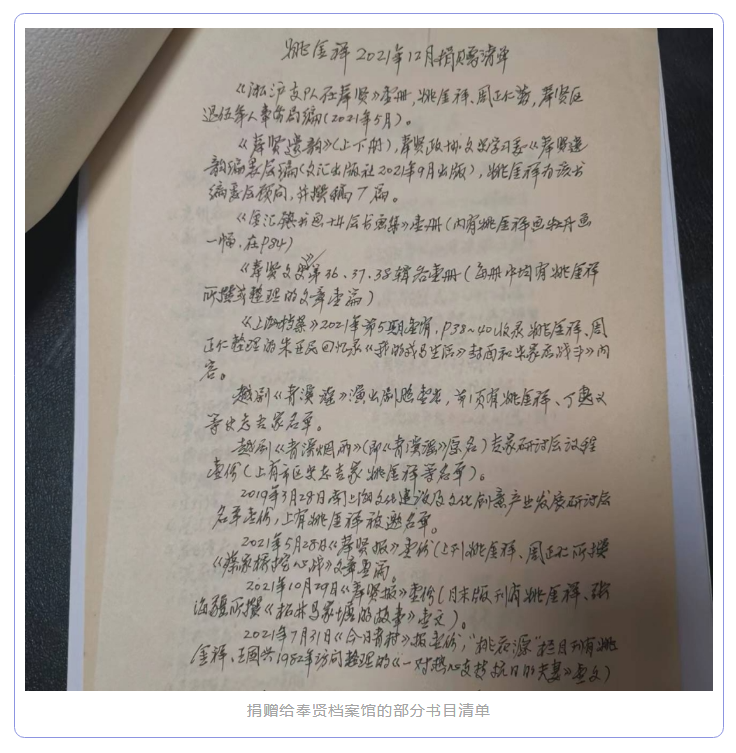 姚金祥2021年12月捐赠清单
《淞沪支队在奉贤》壹册,姚金祥、周正仁著,奉贤区
退伍军人事务局编(2021年5月)。
《奉贤遗韵》(上下册),奉贤政协文史学习委《奉贤遗
韵编委会编(文汇出版社2021年9月出版),姚金祥为该书
编委会顾问,并撰稿7篇。
书画十年会书画集》壹册(内有姚金祥画牡丹画
一幅,在P84)
《奉贤文史》第36、37、38辑各壹册(每册中均有姚金祥
所撰或整理的文章壹篇)
《上海档案》2021年第5期壹册,P38~40收录姚金祥、周
正仁整理的朱亚民回忆录《我的战马生活》封面和朱家店战斗》内
容。
越剧《青溪谣》演出剧照壹张,首页有姚金祥、丁惠义
等史志专家名单。
越剧《青溪烟雨》(即《青溪谣》原名)专家研讨会议程
壹份(上有市区史志专家姚金祥等名单)。
2019年3月28日南上海文化建设及文化创意产业发展研讨会
名单壹份,上有姚金祥被邀名单。
2021年5月28日《奉贤报》壹份(上刊姚金祥、周正仁所撰
《蔡家桥攻心战》文章壹篇。
2021年10月29日《奉贤报》壹份(月末版刊有姚金祥、张
海疆所撰《柘林马家塘的故事》壹文)。
2021年7月31日《今日青村》报壹份,"桃花源"栏目刊有姚
金祥、王国兴1982年访问整理的《一对热心支持抗日的夫妻》壹文)
捐赠给奉贤档案馆的部分书目清单